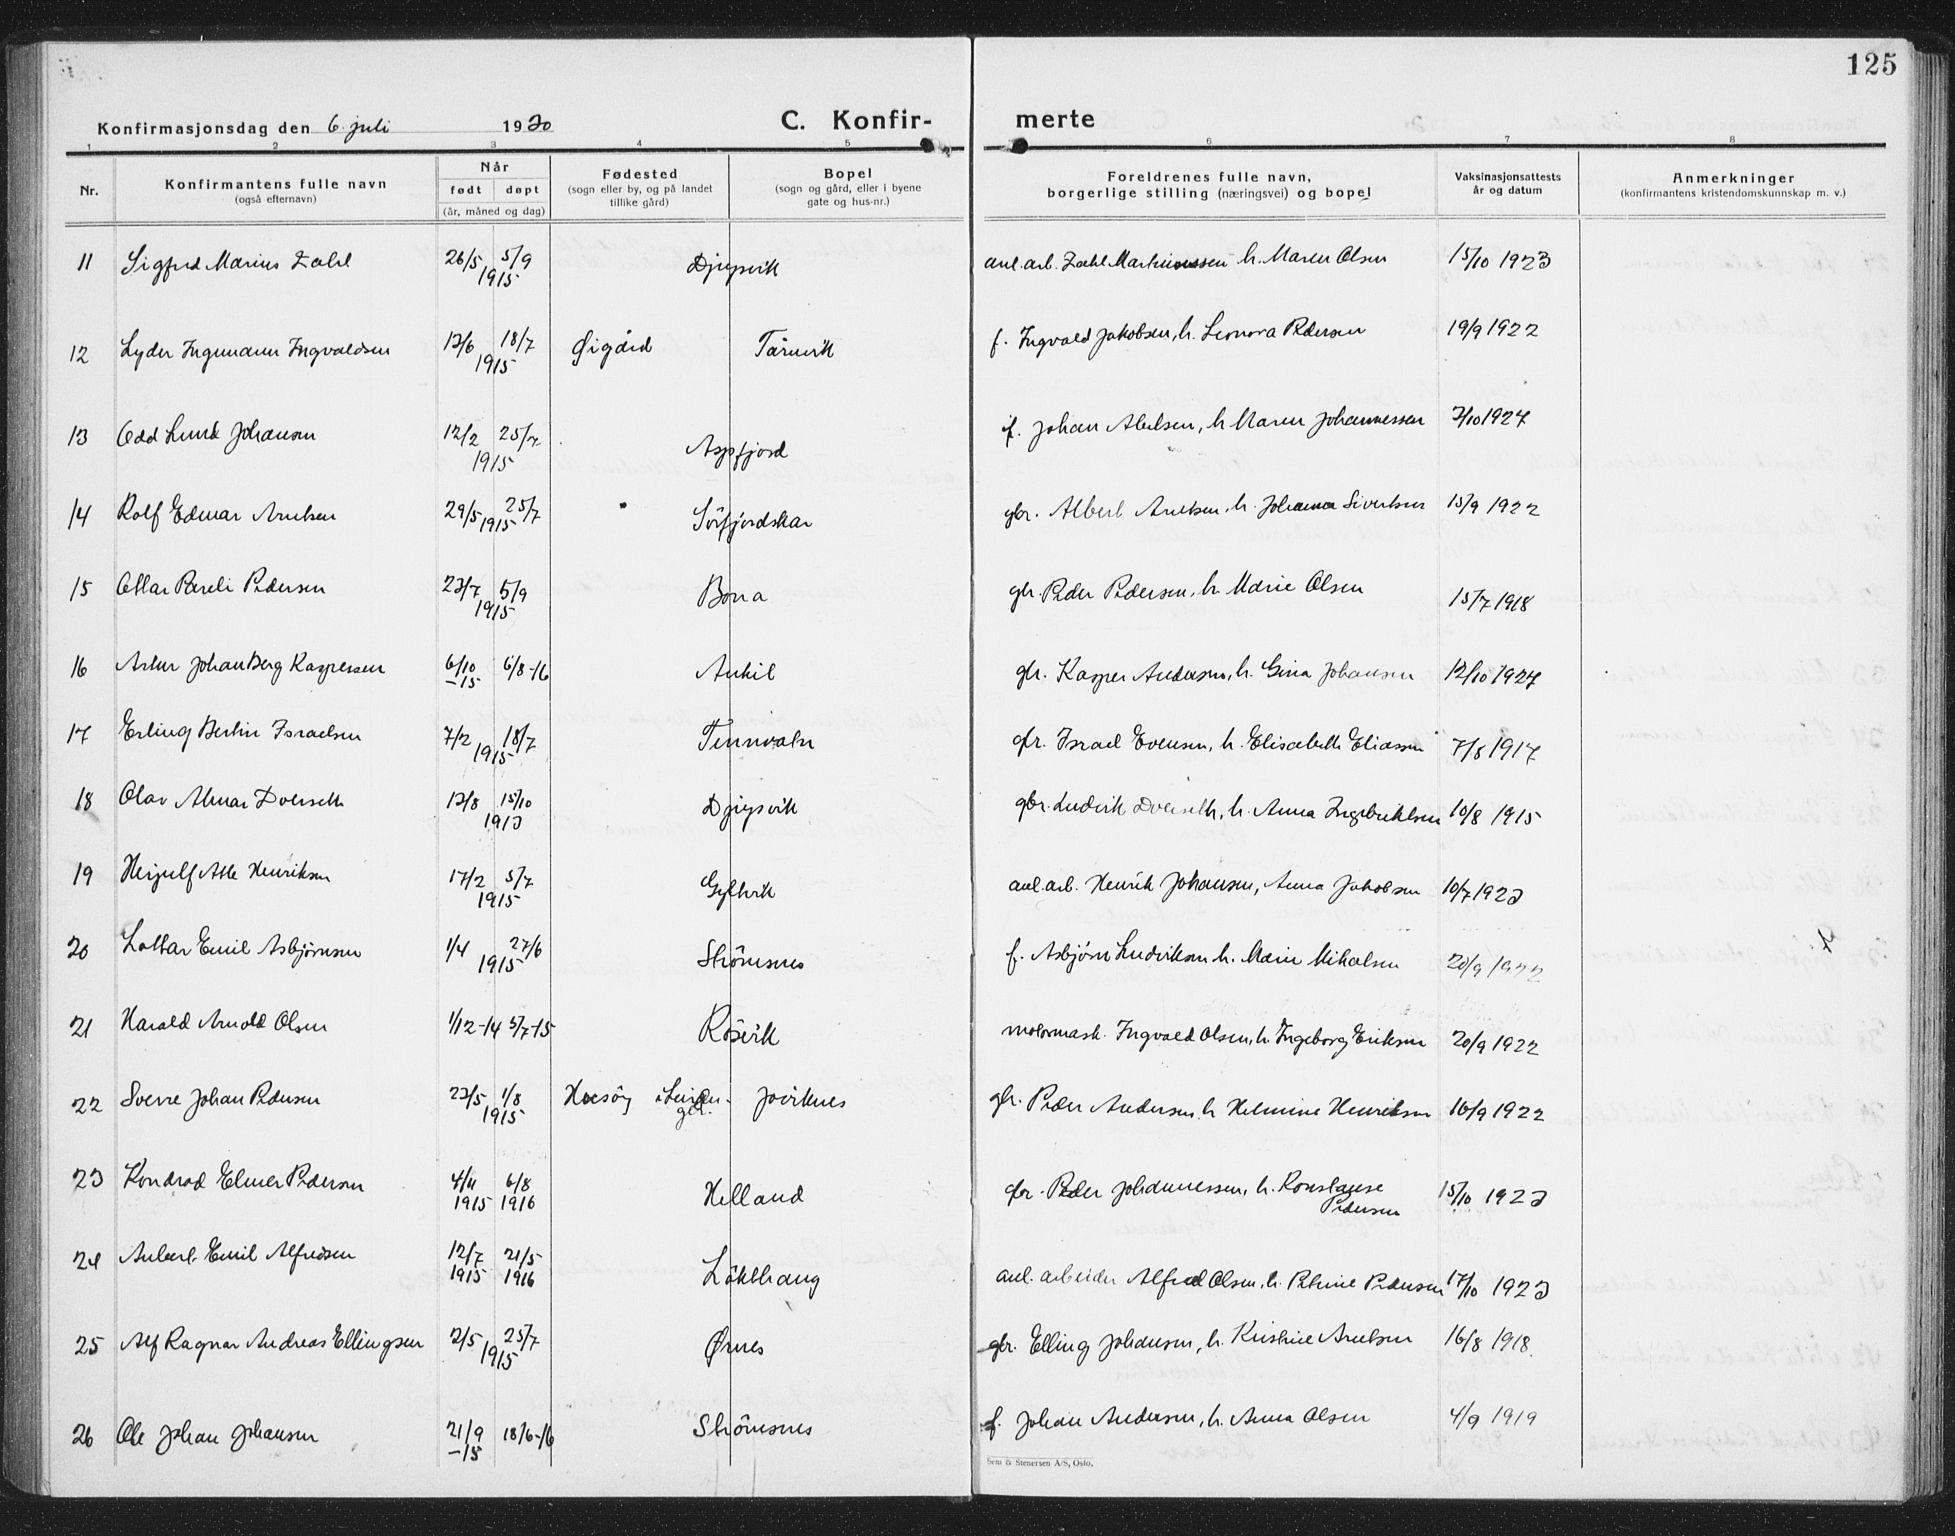 125
Konfirmasjonsdag den 6. juli 1930 C. Konfir- merte
1 2 3 4 5 6 7 8
Nr. Konfirmantens fulle navn (også efternavn) Når født døpt (år, måned og dag) Fødested (sogn eller by, og på landet tillike gård) Bopel (sogn og gård, eller i byene gate og hus-nr.) Foreldrenes fulle navn, borgerlige stilling (næringsvei) og bopel Vaksinasjonsattests år og datum Anmerkninger (konfirmantens kristendomskunnskap m. v.)
11 Sigfred Marius Zahl 26/5 5/9 1915 Djupvik anl. arb. Zahl Martinussen h. Maren Olsen 15/10 1923
12 Lyder Ingemann Ingvaldsen 13/6 18/7 1915 Øigård Tårnvik f. Ingvald Jakobsen, h. Leonora Pedersen 19/9 1922
13 Odd Lund Johansen 12/2 25/7 1915 Aspfjord f. Johan Abelsen, h Maren Johannessen 7/10 1927
14 Rolf Edmar Arntsen 29/5 25/7 1915 Sörfjordskar gbr. Albert Arntsen, h. Johanna Sivertsen 15/9 1922
15 Ottar Pareli Pedersen 23/7 5/9 1915 Bona gbr. Peder Pedersen, h. Marie Olsen 15/7 1918
16 Artur Johan Berg Kaspersen 6/10 -15 6/8-16 Ankil gbr. Kasper Andersen, h. Gina Johansen 12/10 1927
17 Erling Bertin Israelsen 7/2 18/7 1915 Tennvatn gbr. Israel Evensen, h. Elisabeth Eliassen 7/8 1917
18 Olav Almar Dverseth 13/8 15/10 1913 Djupvik gbr. Ludvik Dverseth, h. Anna Ingebriktsen 10/8 1915
19 Herjulf Atle Henriksen 17/2 5/7 1915 Gyltvik anl. arb. Henrik Johansen, Anna Jakobsen 10/7 1923
20 Lottar Emil Asbjörnsen 1/4 27/6 1915 Strömsnes f. Asbjörn Ludviksen h. Marie Mikalsen 20/9 1922
21 Harald Arnold Olsen 1/12-14 5/7-15 Rösvik motormask. Ingvald Olsen, h. Ingeborg Eriksen 20/9 1922
22 Sverre Johan Pedersen 23/5 1/8 1915 Joviknes gbr. Peder Andersen, h Helmine Henriksen 16/9 1922
23 Kondrad Elmer Pedersen 4/11 1915 6/8 1916 Helland gbr. Peder Johannessen, h. Konstanse Pedersen 15/10 1923
24 Anbert Emil Alfredsen 12/7 1915 21/5 1916 Lökthaug anl. arbeider Alfred Olsen, h. Petrine Pedersen 17/10 1923
25 Alf Ragnar Andreas Ellingsen 2/5 25/7 1915 Ørnes gbr. Elling Johansen, h. Kristine Arntsen 16/8 1918.
26 Ole Johan Johansen 21/9 -15 18/6-16 Strömsnes f. Johan Andersen, h. Anna Olsen 4/9 1919
Sem & Stenersen A/S, Oslo.